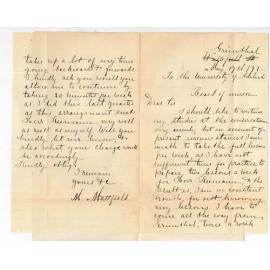 Grünthal
May 17th 189
To the University of Adelaide
Board of music
Dear Sir
I should like to continue
my studies at the conservatorium
very much, but on account of
present circumstances I am
unable to take the full lesson
per week, as I have not
sufficient time for practice to
prepare two lessons a week
for Herr Reimann, & the
result is, I am in constant
for not
my lessons. I have to
come all the way from
Grünthal, twice a week
take up a lot of my time
going backwards & forwards
I kindly ask you would you
allow me to continue by
taking 30 minutes per week
as I did this last quarter
as this arrangement suits
Herr Reimann very well
as well as myself. Will you
kindly let me know &
also what your charge will
be accordingly.
Kindly oblige
I remain
Yours &c